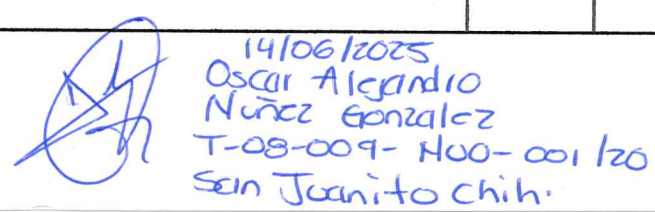 14/06/2025
Oscar Alejandro
Nuñez Gonzalez
T-08-009-NUO-001/20
San Juanito Chih.